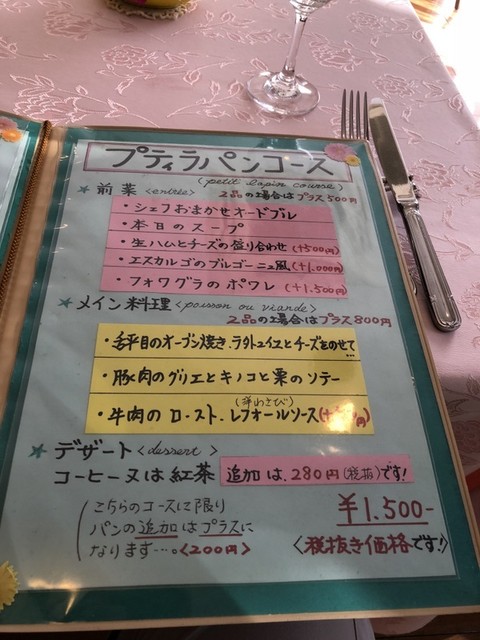 プティラパンコース
(petit lapin course)
★前菜<entrée> 2品の場合はプラス500円
・シェフおまかせオードブル
・本日のスープ
・生ハムとチーズの盛り合わせ(+500円)
・エスカルゴのブルゴーニュ風(+1.000円)
・フォワグラのポワレ(+1.500円)
★メイン料理<poisson ou viande>
2品の場合はプラス800円
・舌平目のオーブン焼き.ラタトゥイユとチーズをのせて…
・豚肉のグリエとキノコと栗のソテー
(洋わさび)
・牛肉のロースト.レフォールソース
★デザート<dessert>
コーヒー又は紅茶 追加は、280円(税抜)です!
こちらのコースに限り
パンの追加はプラスに
なります…。<200円>
¥1.500-
<税抜き価格です!>